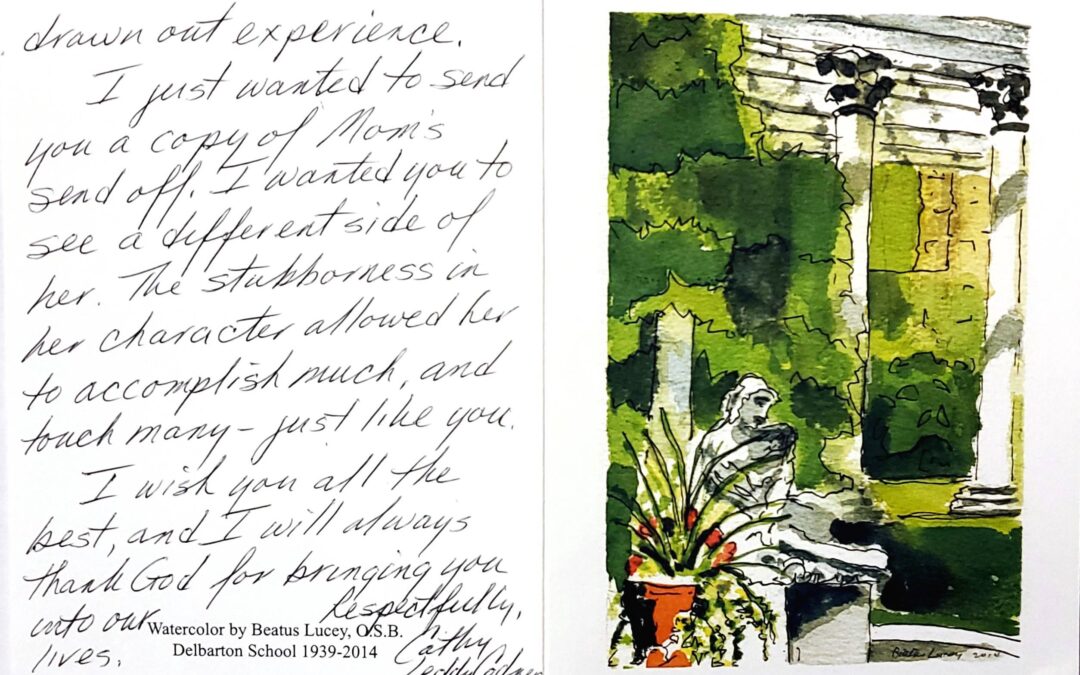 drawn out experience.
I just wanted to send
you a copy of Mom's
send off. I wanted you to
see a different side of
her. The stubborness in
her character allowed her
to accomplish much, and
touch many - just like you.
I wish you all the
best, and I will always
thank God for bringing you
into our
lives.
Respectfully,
Cathy
Watercolor by Beatus Lucey, O.S.B.
Delbarton School 1939-2014
Beatus Lucey 2014